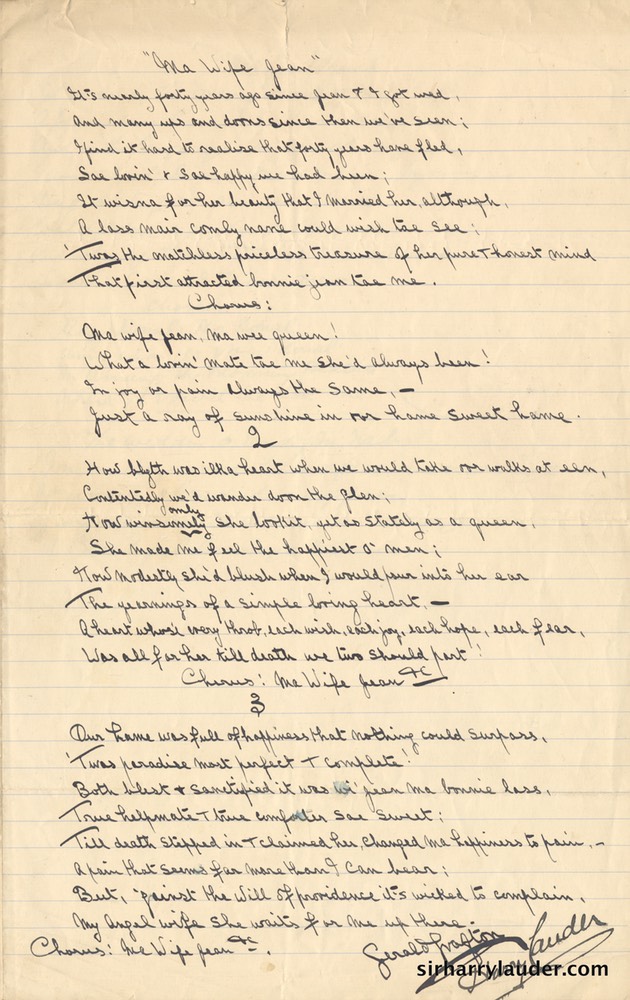 "Ma Wife Jean"
It's nearly forty years ago since Jean & I got wed,
And many ups and doons since then we've seen;
I find it hard to realise that forty years have fled,
Sae lovin' & sae happy we had been;
It wisna for her beauty that I married her, although,
A lass mair comly nane could wish tae see;
'Twas the matchless priceless treasure of her pure & honest mind
That first attracted bonnie Jean tae me.
Chorus:
Ma wife Jean, ma wee queen!
What a lovin' mate tae me she'd always been!
In joy or pain always the same, —
Just a ray of sunshine in oor hame sweet hame.
2
How blyth was ilka heart when we would take oor walks at een,
Contentedly we'd wander doon the glen;
How winsomely she lookit, yet as stately as a queen,
She made me feel the happiest o' men;
How modestly she'd blush when I would pour into her ear
The yearnings of a simple loving heart, —
A heart whose every throb, each wish, each joy, each hope, each fear,
Was all for her till death we two should part!
Chorus: Ma Wife Jean &c
3
Our home was full of happiness that nothing could surpass,
'Twas paradise most perfect & complete!
Both blest & sanctified it was wi' Jean ma bonnie lass,
True helpmate & true comforter sae sweet;
Till death stepped in & claimed her, changed ma happiness to pain, —
A pain that seems far more than I can bear;
But, 'gainst the will of providence it's wicked to complain,
My Angel wife she waits for me up there.
Chorus: Ma Wife Jean &c.
Gerald Grafton
Harry Lauder
sirharrylauder.com